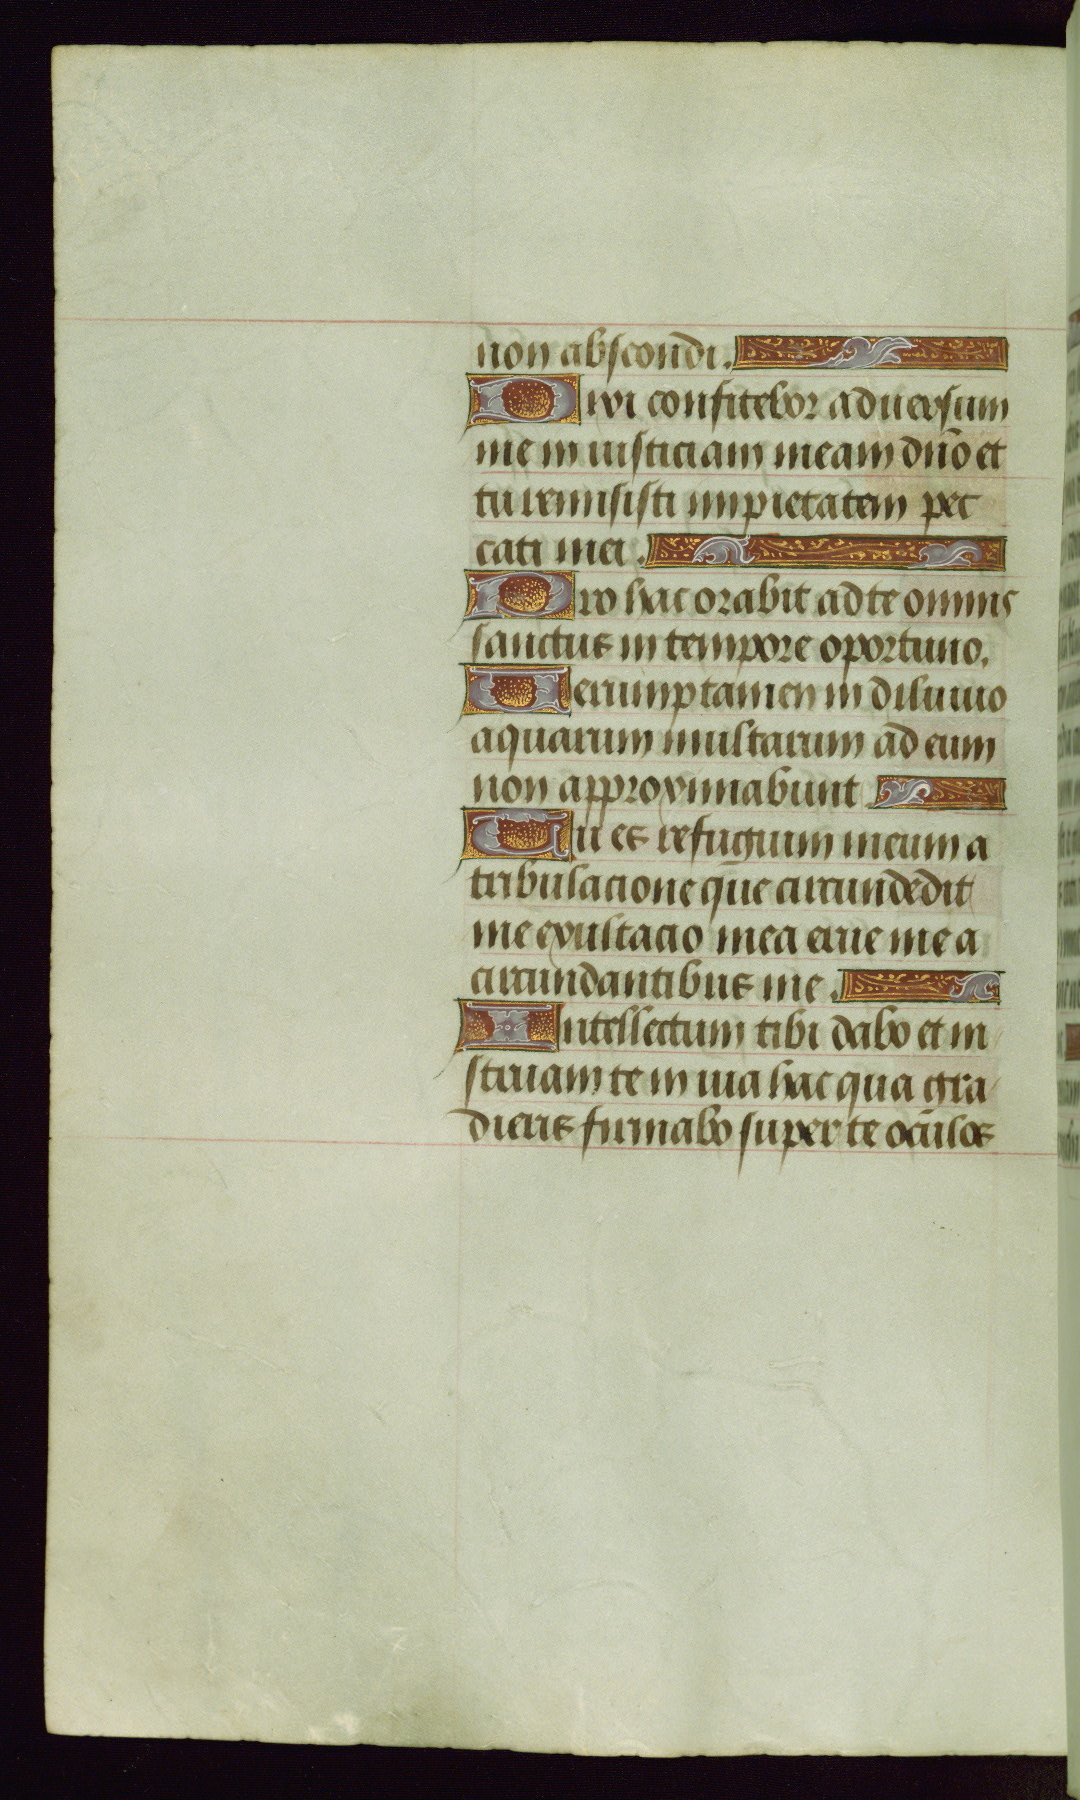 non abscondi.
Dixi confitebor aduersum
me in iusticiam meam dño et
tu remisisti impietatem pec
cati mei.
Pro hac orabit ad te omnis
sanctus in tempore oportuno.
Uerumptamen in diluuio
aquarum multarum ad eum
non approximabunt
Tu es refugium meum a
tribulacione que circundedit
me exultacio mea erue me a
circundantibus me.
Intellectum tibi dabo et in
struam te in uia hac qua gra
dieris firmabo super te oculos